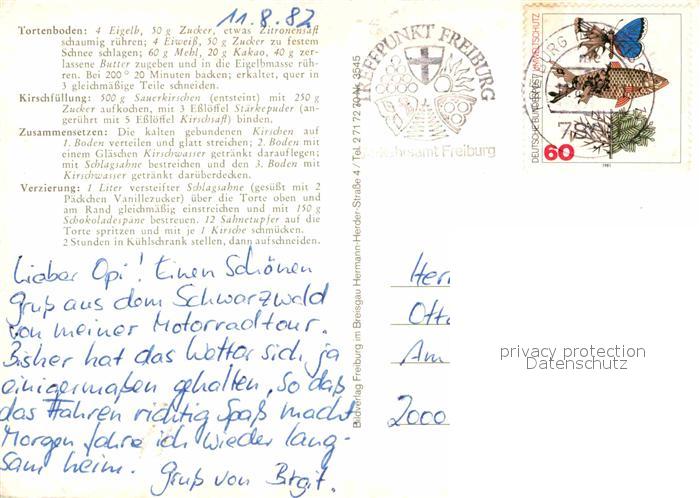 11.8.82
Tortenboden: 4 Eigelb, 50 g Zucker, etwas Zitronensaft
schaumig rühren; 4 Eiweiß, 50 g Zucker zu festem
Schnee schlagen; 60 g Mehl, 20 g Kakao, 40 g zer-
lassene Butter zugeben und in die Eigelbmasse rüh-
ren. Bei 200° 20 Minuten backen; erkaltet, quer in
3 gleichmäßige Teile schneiden.
Kirschfüllung: 500 g Sauerkirschen (entsteint) mit 250 g
Zucker aufkochen, mit 3 Eßlöffel Stärkepuder (an-
gerührt mit 5 Eßlöffel Kirschsaft) binden.
Zusammensetzen: Die kalten gebundenen Kirschen auf
1. Boden verteilen und glatt streichen; 2. Boden mit
einem Gläschen Kirschwasser getränkt darauflegen;
mit Schlagsahne bestreichen und den 3. Boden mit
Kirschwasser getränkt darüberdecken.
Verzierung: 1 Liter versteifter Schlagsahne (gesüßt mit 2
Päckchen Vanillezucker) über die Torte oben und
am Rand gleichmäßig einstreichen und mit 150 g
Schokoladespäne bestreuen. 12 Sahnetupfer auf die
Torte spritzen und mit je 1 Kirsche schmücken.
2 Stunden in Kühlschrank stellen, dann aufschneiden.
Lieber Opi! Einen Schönen
Gruß aus dem Schwarzwald
von meiner Motorradtour.
Bisher hat das Wetter sich ja
einigermaßen gehalten, so daß
das Fahren richtig Spaß macht
Morgen fahre ich wieder lang-
sam heim. Gruß von Birgit.
Bildverlag Freiburg im Breisgau Hermann-Herder-Straße 4 / Tel. 2 71 72 70 Nr. 3545
TREFFPUNKT FREIBURG
Verkehrsamt Freiburg
DEUTSCHE BUNDESPOST UMWELTSCHUTZ
60
1981
Herr
Otto
Am
2000
privacy protection
Datenschutz